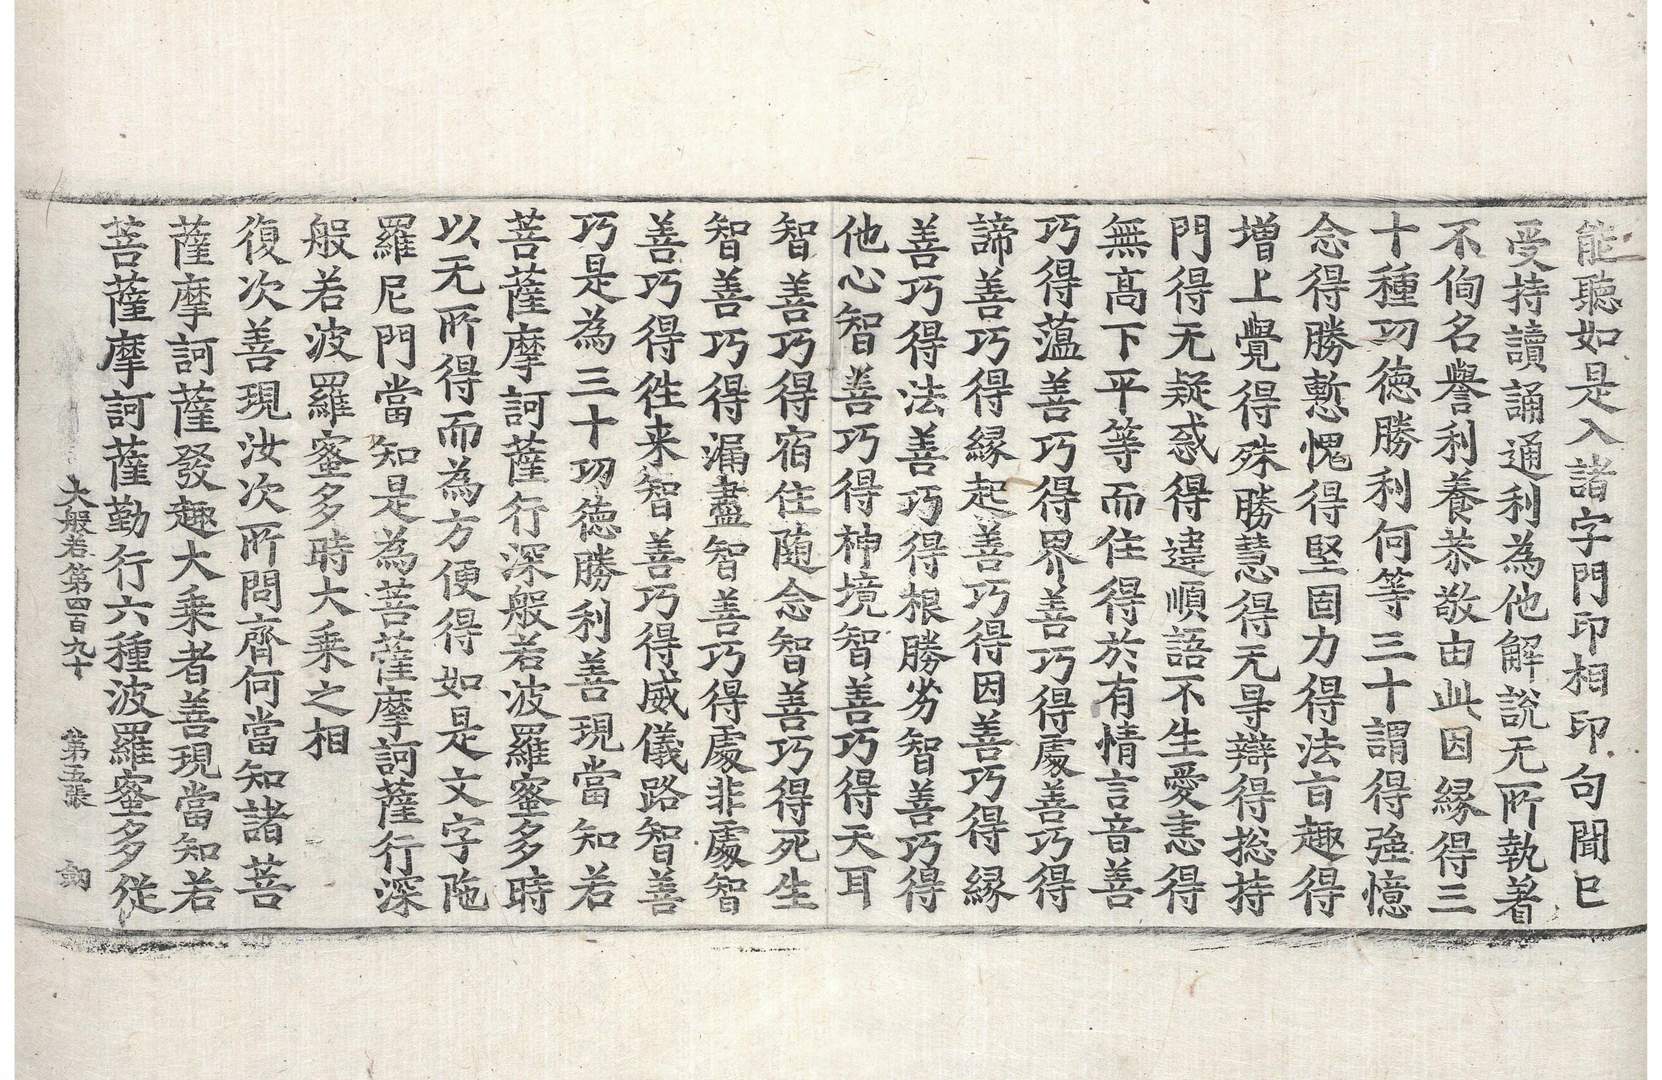 能聽如是入諸字門印相印句聞已
受持讀誦通利為他解説无所執著
不徇名譽利養恭敬由此因緣得三
十種功德勝利何等三十謂得強憶
念得勝慙愧得堅固力得法㫖趣得
増上覺得殊勝慧得无㝵辯得揔持
門得无疑惑得違順語不生愛恚得
無髙下平等而住得於有情言音善
巧得蕰善巧得界善巧得處善巧得
諦善巧得緣起善巧得因善巧得緣
善巧得法善巧得根勝劣智善巧得
他心智善巧得神境智善巧得天耳
智善巧得宿住随念智善巧得死生
智善巧得漏盡智善巧得處非處智
善巧得徃来智善巧得威儀路智善
巧是為三十功德勝利善現當知若
菩薩摩訶薩行深般若波羅蜜多時
以无所得而為方便得如是文字陁
羅尼門當知是為菩薩摩訶薩行深
般若波羅蜜多時大乗之相
復次善現汝次所問齊何當知諸菩
薩摩訶薩發趣大乗者善現當知若
菩薩摩訶薩勤行六種波羅蜜多從
大般若第四百九十 第五張 劒